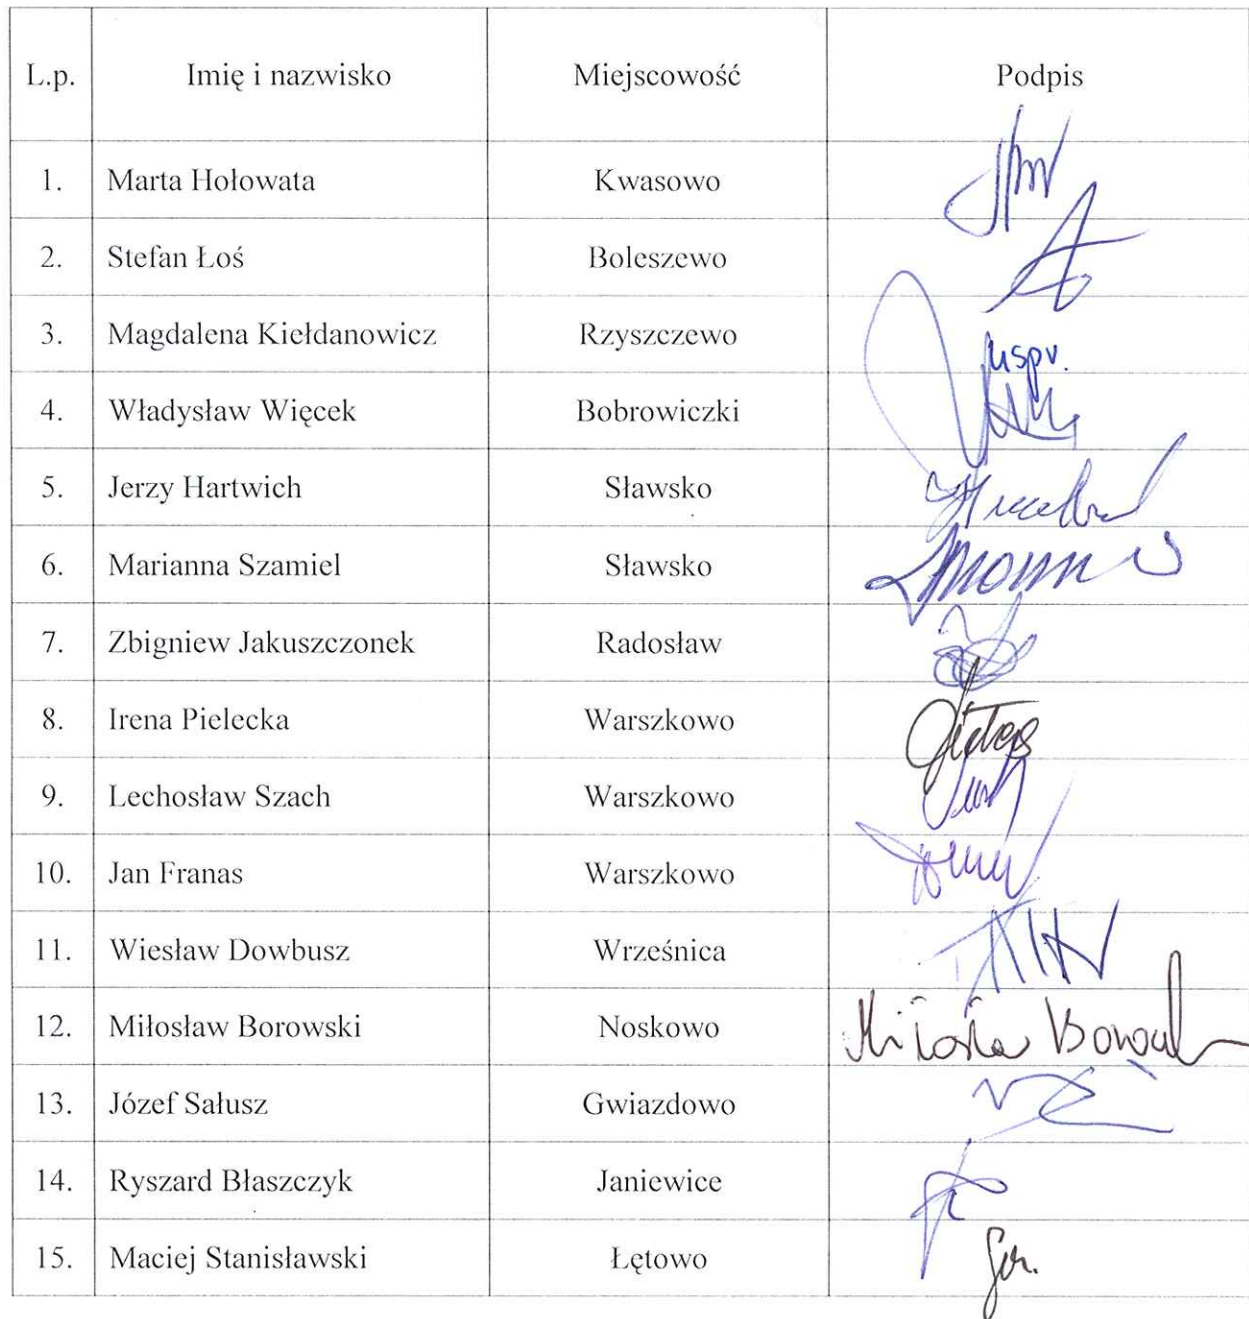 L.p. Imię i nazwisko Miejscowość Podpis
1. Marta Hołowata Kwasowo
2. Stefan Łoś Boleszewo
3. Magdalena Kiełdanowicz Rzyszczewo uspr.
4. Władysław Więcek Bobrowiczki
5. Jerzy Hartwich Sławsko
6. Marianna Szamiel Sławsko
7. Zbigniew Jakuszczonek Radosław
8. Irena Pielecka Warszkowo
9. Lechosław Szach Warszkowo
10. Jan Franas Warszkowo
11. Wiesław Dowbusz Wrześnica
12. Miłosław Borowski Noskowo
13. Józef Sałusz Gwiazdowo
14. Ryszard Błaszczyk Janiewice
15. Maciej Stanisławski Łętowo